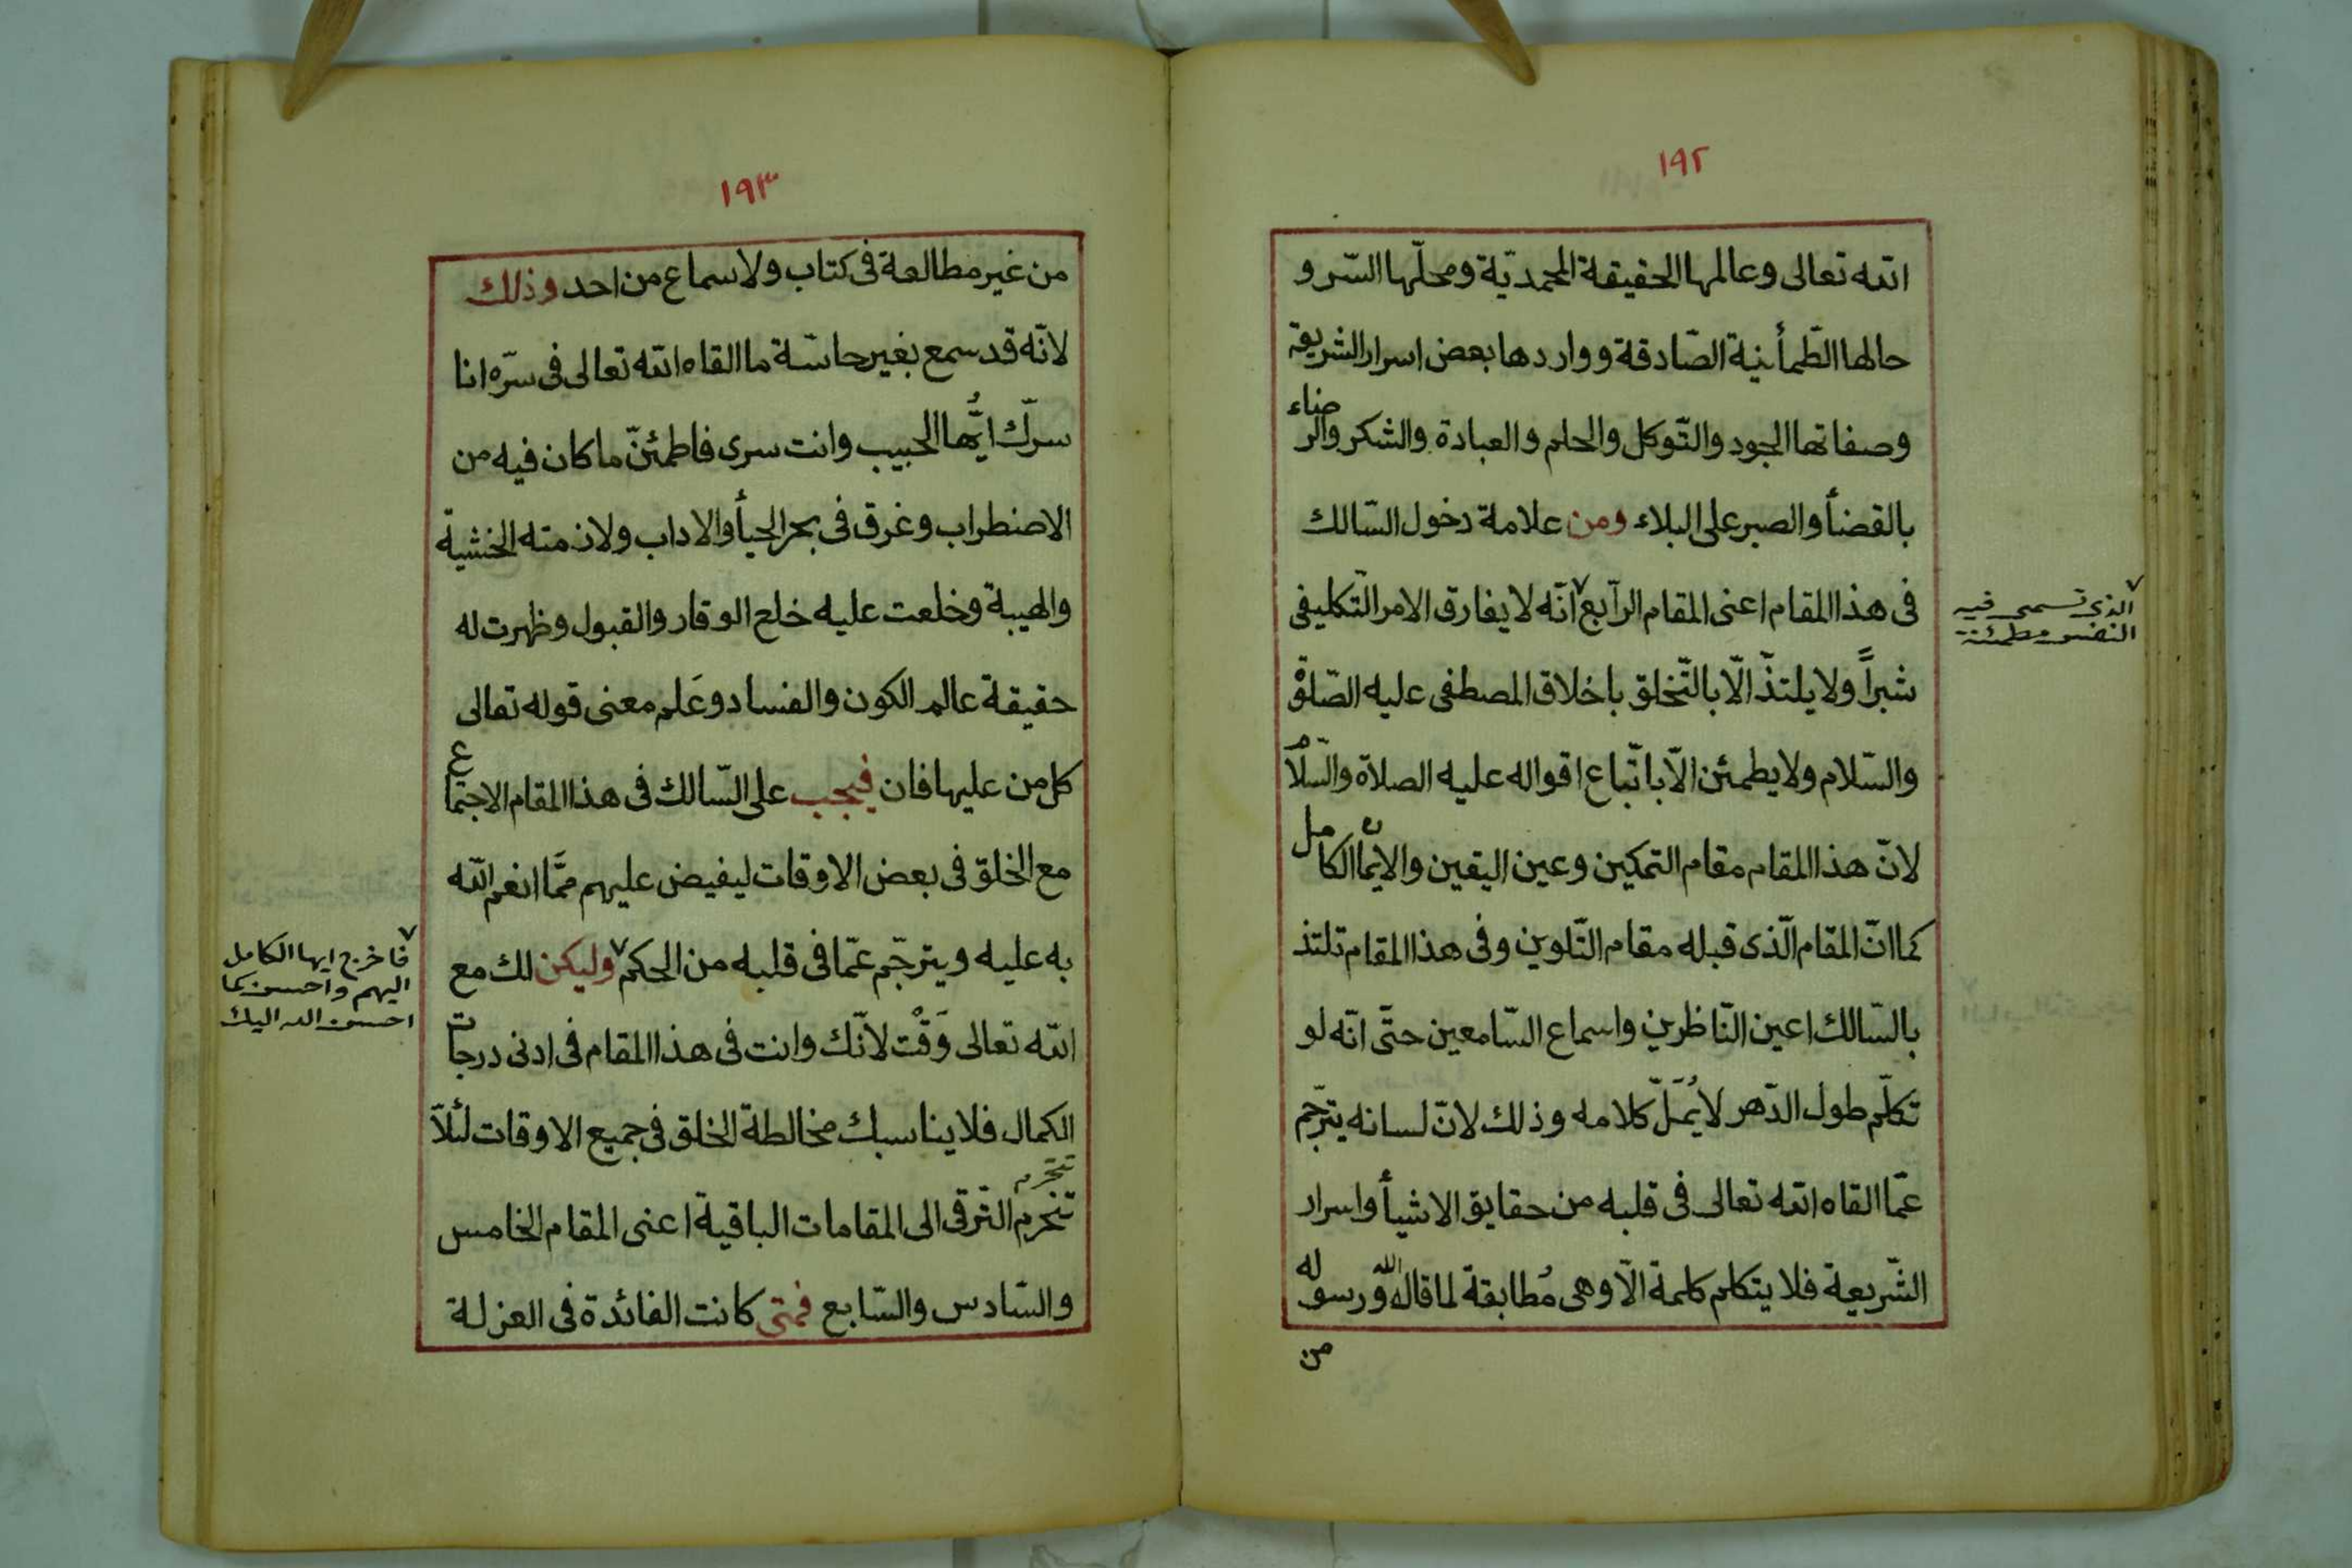 ١٩٢
الله تعالى وعالمها الحقيقة المحمديّة ومحلّها السّر و
حالها الطّمأنينة الصّادقة وواردها بعض اسرار الشريعة
وصفاتها الجود والتّوكل والحلم والعبادة والشكر والرضاء
بالقضأ والصبر على البلاء ومن علامة دخول السّالك
فى هذا المقام اعنى المقام الرّابع ٧ انّه لا يفارق الامر التّكليفى
٧ الذى تسمى فيه
النفس مطمئنة
شبراً ولا يلتذّ الّا بالتّخلق باخلاق المصطفى عليه الصّلوة
والسّلام ولا يطمئن الّا باتّباع اقواله عليه الصلاة والسّلام
لانّ هذا المقام مقام التمكين وعين اليقين والايمان الكامل
كما انّ المقام الّذى قبله مقام التّلوين وفى هذا المقام تلتذ
بالسّالك اعين النّاظرين واسماع السّامعين حتّى انّه لو
تكلّم طول الدّهر لا يُمَلّ كلامه وذلك لانّ لسانه يترجّم
عمّا القاه الله تعالى فى قلبه من حقايق الاشيأ واسرار
الشّريعة فلا يتكلم كلمة الّا وهى مُطابقة لما قال الله ورسوله
من
١٩٣
من غير مطالعة فى كتاب ولا سماع من احد وذلك
لانّه قد سمع بغير حاسّة ما القاه الله تعالى فى سرّه انا
سرّك ايُّها الحبيب وانت سرى فاطمئنّ ما كان فيه من
الاضطراب وغرق فى بحر الحيأ والاداب ولازمته الخشية
والهيبة وخلعت عليه خلع الوقار والقبول وظهرت له
حقيقة عالم الكون والفساد وعَلم معنى قوله تعالى
كل من عليها فان فيجب على السّالك فى هذا المقام الاجتماع
مع الخلق فى بعض الاوقات ليفيض عليهم ممّا انعم الله
به عليه ويترجّم عمّا فى قلبه من الحكم ٧ وليكن لك مع
٧ فاخرج ايها الكامل
اليهم واحسن كما
احسن الله اليك
الله تعالى وَقْت لانّك وانت فى هذا المقام فى ادنى درجات
الكمال فلا يناسبك مخالطة الخلق فى جميع الاوقات لئلّا
تنخرم التّرقى الى المقامات الباقية اعنى المقام الخامس
والسّادس والسّابع فمتى كانت الفائدة فى العزلة